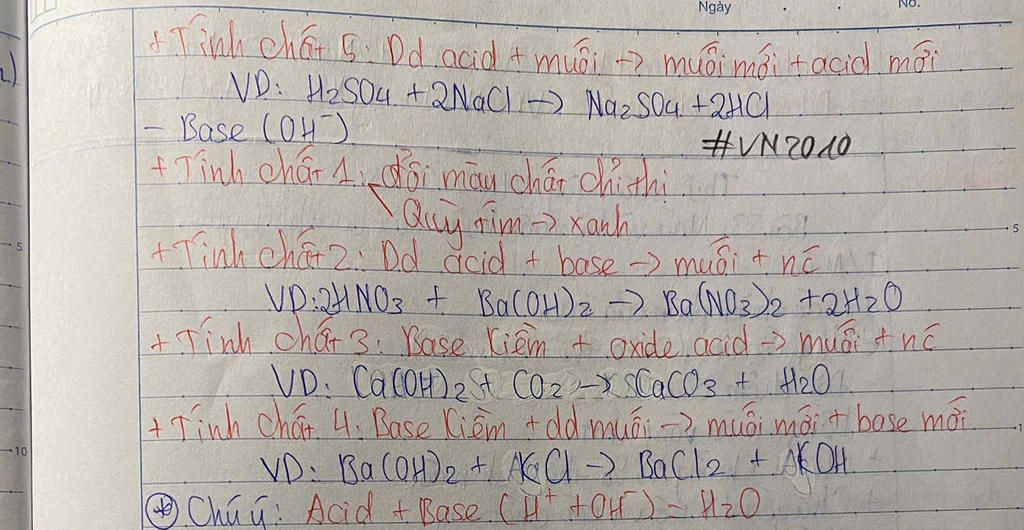 Ngày . . No.
+ Tính chất 5: Dd acid + muối → muối mới + acid mới
VD: H2SO4 + 2NaCl → Na2SO4 + 2HCl
- Base (OH⁻)
#VN2010
+ Tính chất 1: đổi màu chất chỉ thị
Quỳ tím → xanh
5
5
+ Tính chất 2: Dd acid + base → muối + nc
VD: 2HNO3 + Ba(OH)2 → Ba(NO3)2 + 2H2O
+ Tính chất 3: Base kiềm + oxide acid → muối + nc
VD: Ca(OH)2 + CO2 → CaCO3 + H2O
+ Tính chất 4: Base kiềm + dd muối → muối mới + base mới
10
VD: Ba(OH)2 + KCl → BaCl2 + KOH
* Chú ý: Acid + Base (H⁺ + OH⁻) = H2O